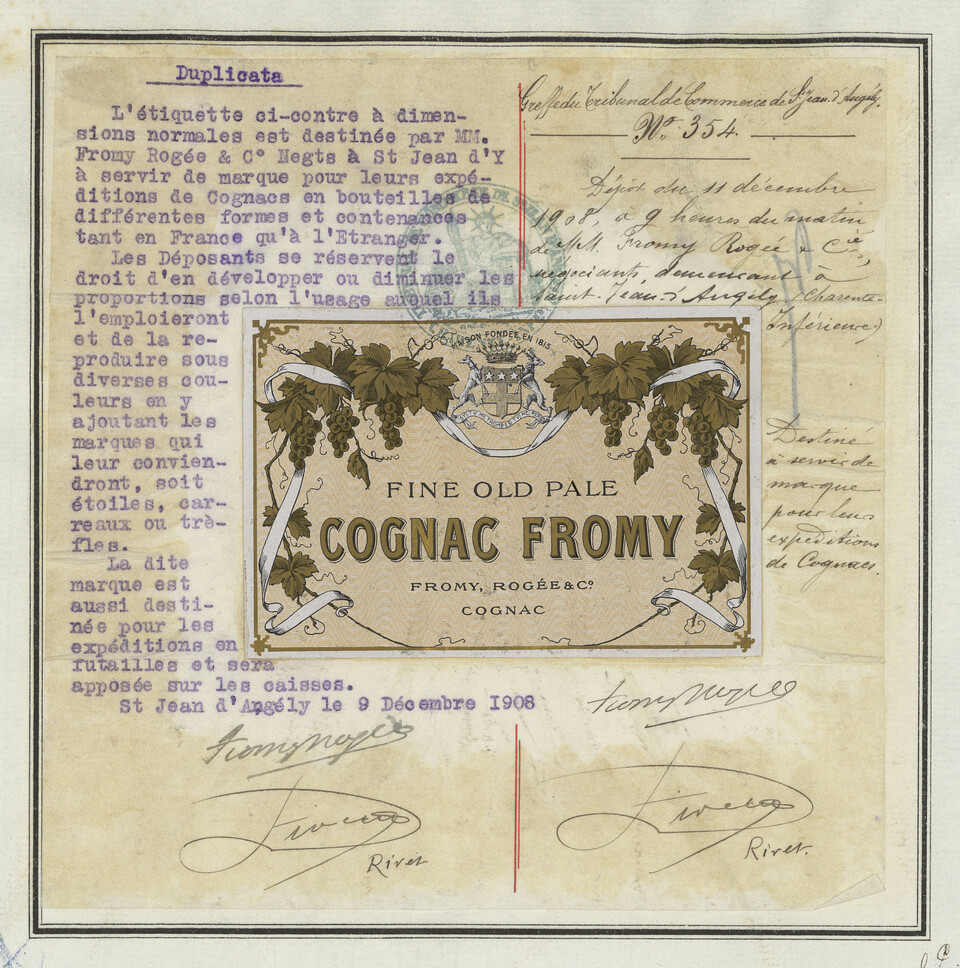 Duplicata
L'étiquette ci-contre à dimen-
sions normales est destinée par MM.
Fromy Rogée & C° Negts à St Jean d'Y
à servir de marque pour leurs expé-
ditions de Cognacs en bouteilles de
différentes formes et contenances
tant en France qu'à l'Etranger.
Les Déposants se réservent le
droit d'en développer ou diminuer les
proportions selon l'usage auquel ils
l'emploieront
et de la re-
produire sous
diverses cou-
leurs en y
ajoutant les
marques qui
leur convien-
dront, soit
étoiles, car-
reaux ou trè-
fles.
La dite
marque est
aussi desti-
née pour les
expéditions en
futailles et sera
apposée sur les caisses.
St Jean d'Angély le 9 Décembre 1908
Fromy Rogée
Rivet
Rivet
Greffe du Tribunal de Commerce de St Jean d'Angély.
N° 354.
Dépôt du 11 décembre
1908, à 9 heures du matin
de MM. Fromy Rogée & Cie,
négociants, demeurant à
Saint-Jean-d'Angély (Charente-
Inférieure)
Destiné
à servir de
marque
pour leurs
expéditions
de Cognacs.
MAISON FONDÉE EN 1815
FINE OLD PALE
COGNAC FROMY
FROMY, ROGÉE & C°
COGNAC
Fromy Rogée
Rivet
Rivet.